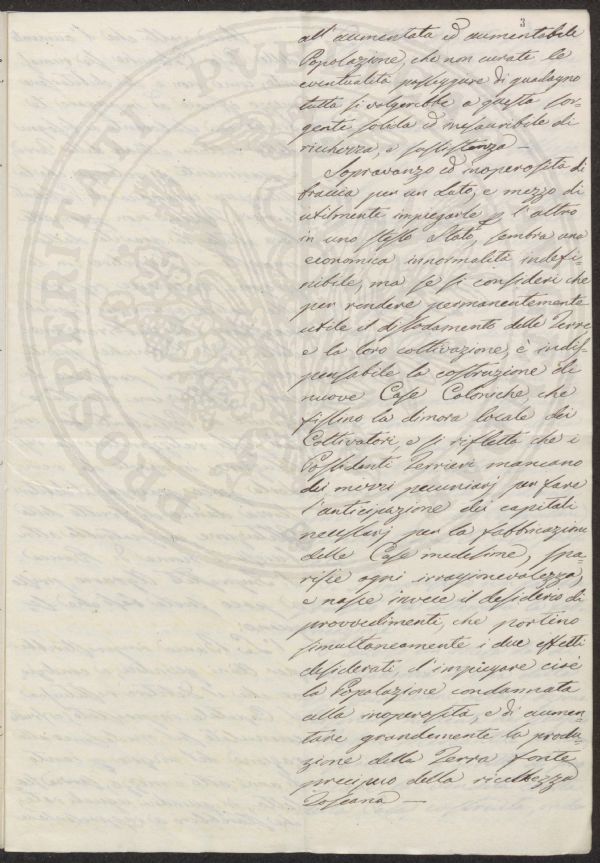 3
all'aumentata ed aumentabile
Popolazione, che non curate le
eventualità passeggere di guadagno
tutta si volgerebbe a questa sor-
gente solida ed inesauribile di
ricchezza, e sussistenza —
Sopravanzo ed inoperosità di
braccia per un lato, e mezzo di
utilmente impiegarle p l'altro
in uno stesso Stato, sembra una
economica innormalità indefi-
nibile, ma se si consideri che
per rendere permanentemente
utile il dissodamento delle Terre
e la loro coltivazione, è indis-
pensabile la costruzione di
nuove Case Coloniche, che
fissino la dimora locale dei
Coltivatori, e si rifletta che i
Possidenti Terrieri mancano
dei mezzi pecuniarj per fare
l'anticipazione dei capitali
necessarj per la fabbricazione
delle Case medesime, spa-
risce ogni irragionevolezza,
e nasce invece il desiderio di
provvedimenti, che portino
simultaneamente i due effetti
desiderati, d'impiegare cioè
la Popolazione condannata
alla inoperosità, e di aumen-
tare grandemente la produ-
zione della Terra fonte
precipuo della ricchezza
Toscana —
PROSPERITATI PVB